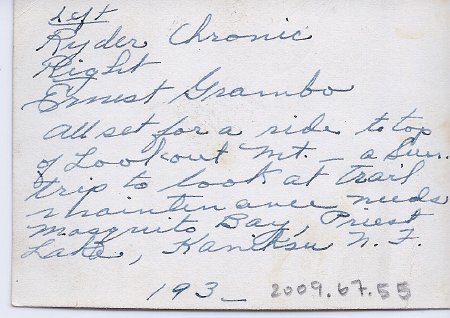 Left
Ryder Chronic
Right
Ernest Grambo
All set for a ride to top
of Lookout Mt. — a Sun.
trip to look at trail
maintenance needs
Mosquito Bay, Priest
Lake, Kaniksu N. F.
193_ 2009.67.55